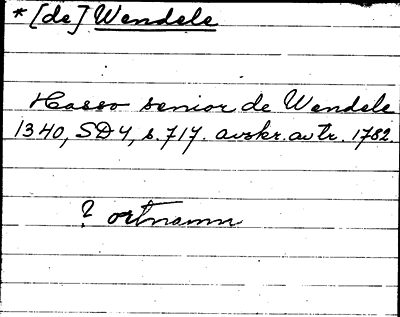 * [de] Wendele
Hasso senior de Wendele
1340, SD4, s. 717. avskr. av tr. 1782.
? ortnamn